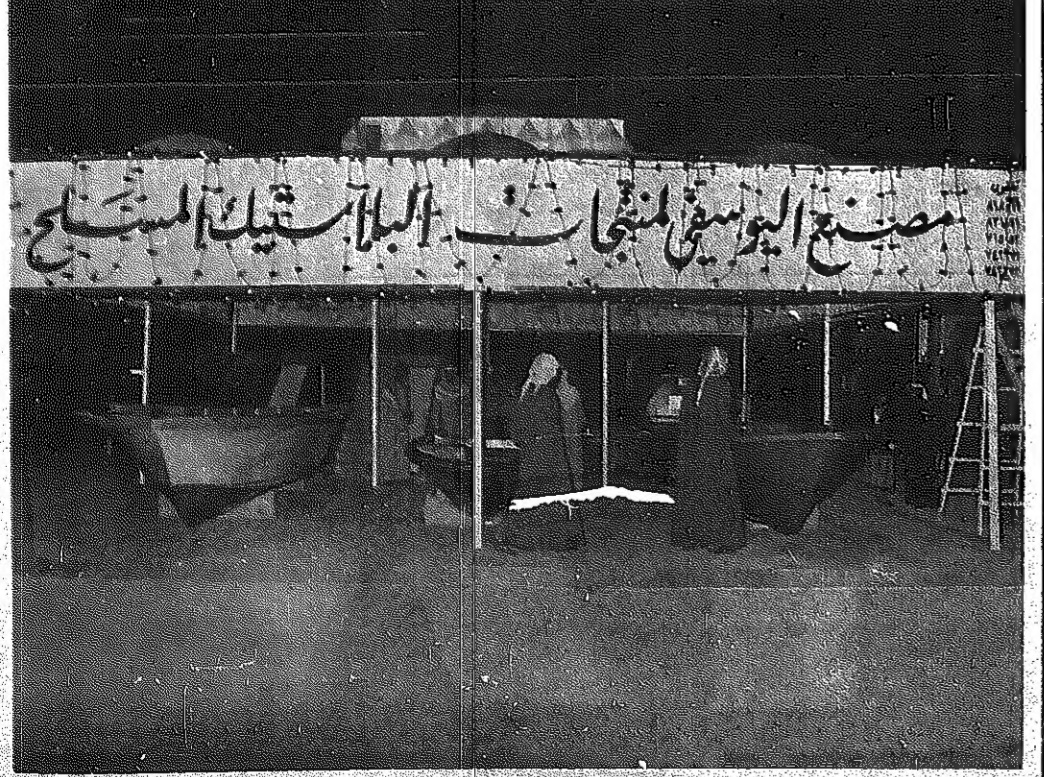 مصنع اليوسيفي لمنتجات البلاستيك المسلح